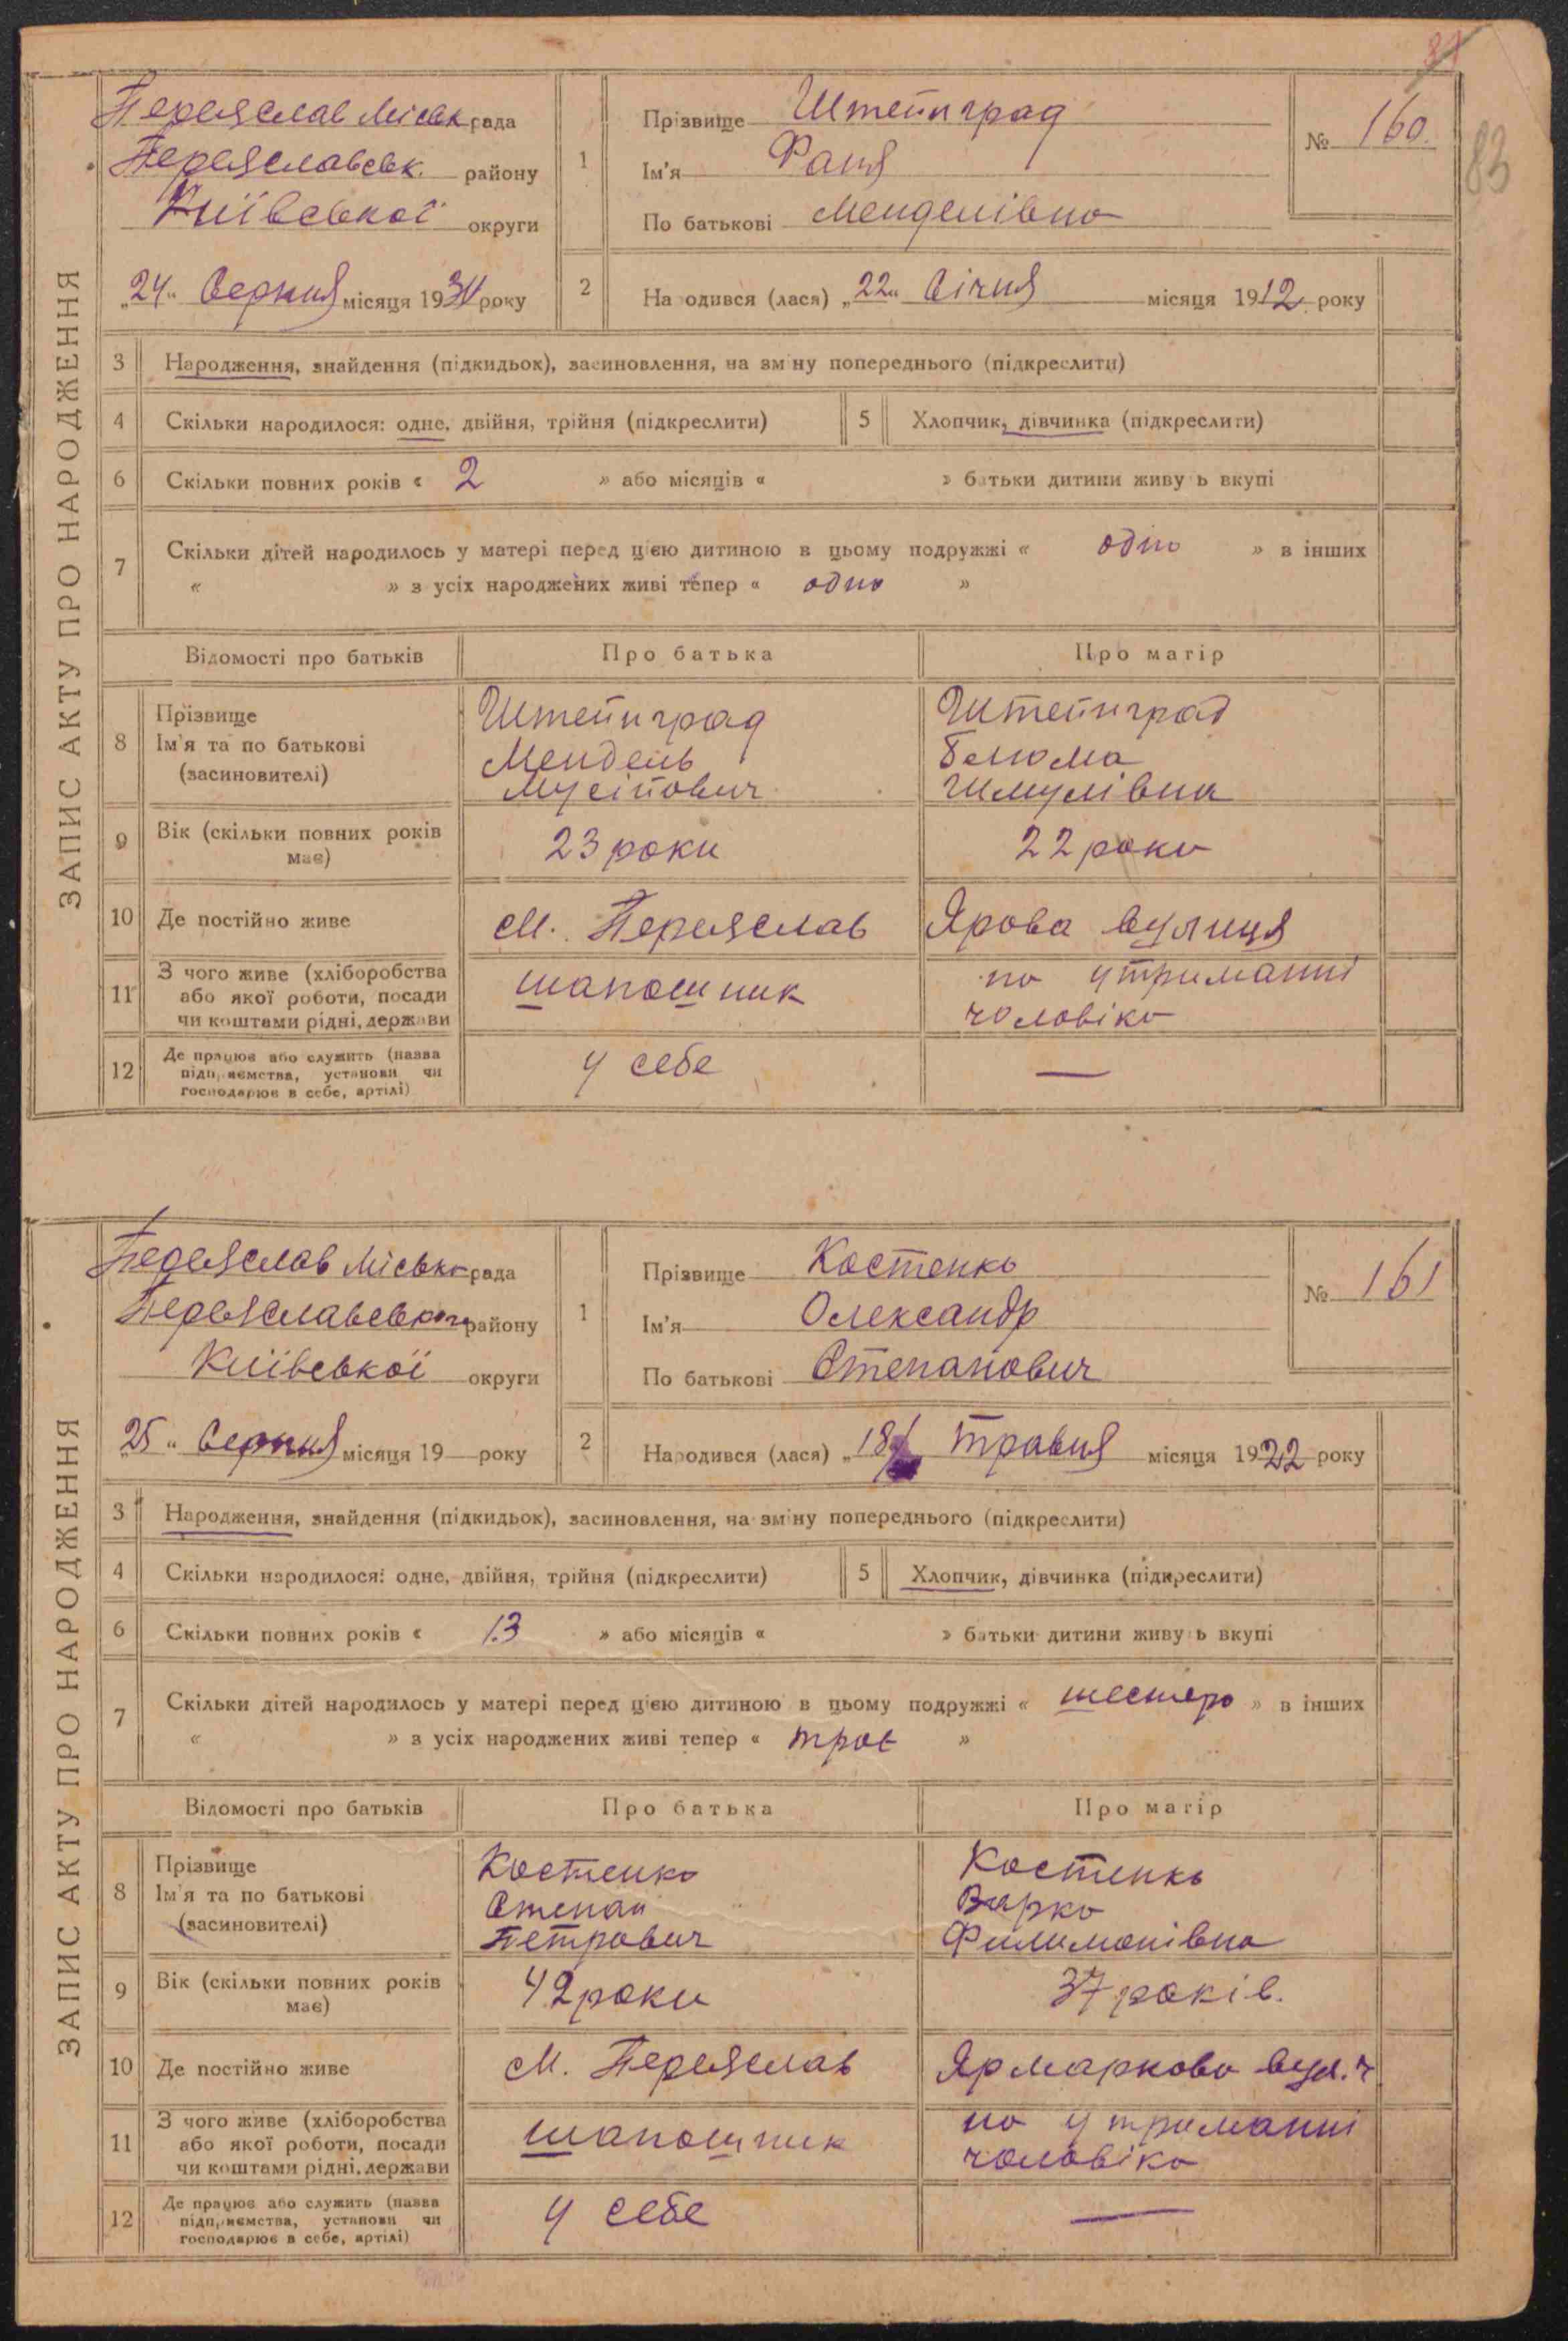 31
83
ЗАПИС АКТУ ПРО НАРОДЖЕННЯ
Переяслав Міськ рада
Переяславськ. району
Київської округи
„24“ Серпня місяця 19 року
1
Прізвище Штейнград
Ім'я Фаня
По батькові Менделівна
№ 160.
2 Народився (лася) „22“ Січня місяця 1912 року
3 Народження, знайдення (підкидьок), засиновлення, на зміну попереднього (підкреслити)
4 Скільки народилося: одне, двійня, трійня (підкреслити) 5 Хлопчик, дівчинка (підкреслити)
6 Скільки повних років « 2 » або місяців « » батьки дитини живуть вкупі
7 Скільки дітей народилось у матері перед цією дитиною в цьому подружжі « одно » в інших
« » з усіх народжених живі тепер « одно »
Відомості про батьків Про батька Про матір
8 Прізвище Ім'я та по батькові (засиновителі)
Штейнград Штейнград
Мендель Белюма
Мусійович Шмулівна
9 Вік (скільки повних років має) 23 роки 22 роки
10 Де постійно живе М. Переяслав Ярова вулиця
11 З чого живе (хліборобства або якої роботи, посади чи коштами рідні, держави шапошник на утриманні чоловіка
12 Де працює або служить (назва підприємства, установи чи господарює в себе, артілі) у себе —
ЗАПИС АКТУ ПРО НАРОДЖЕННЯ
Переяслав Місько рада
Переяславського району
Київської округи
„25“ Серпня місяця 19 — року
1
Прізвище Костенко
Ім'я Олександр
По батькові Степанович
№ 161
2 Народився (лася) „18 Травня місяця 1922 року
3 Народження, знайдення (підкидьок), засиновлення, на зміну попереднього (підкреслити)
4 Скільки народилося: одне, двійня, трійня (підкреслити) 5 Хлопчик, дівчинка (підкреслити)
6 Скільки повних років « 13 » або місяців « » батьки дитини живуть вкупі
7 Скільки дітей народилось у матері перед цією дитиною в цьому подружжі « шестеро » в інших
« » з усіх народжених живі тепер « троє »
Відомості про батьків Про батька Про матір
8 Прізвище Ім'я та по батькові (засиновителі)
Костенко Костенко
Степан Варка
Петрович Филимонівна
9 Вік (скільки повних років має) 42 роки 37 років.
10 Де постійно живе М. Переяслав Ярмаркова вул.
11 З чого живе (хліборобства або якої роботи, посади чи коштами рідні, держави шапошник на утриманні чоловіка
12 Де працює або служить (назва підприємства, установи чи господарює в себе, артілі) у себе —